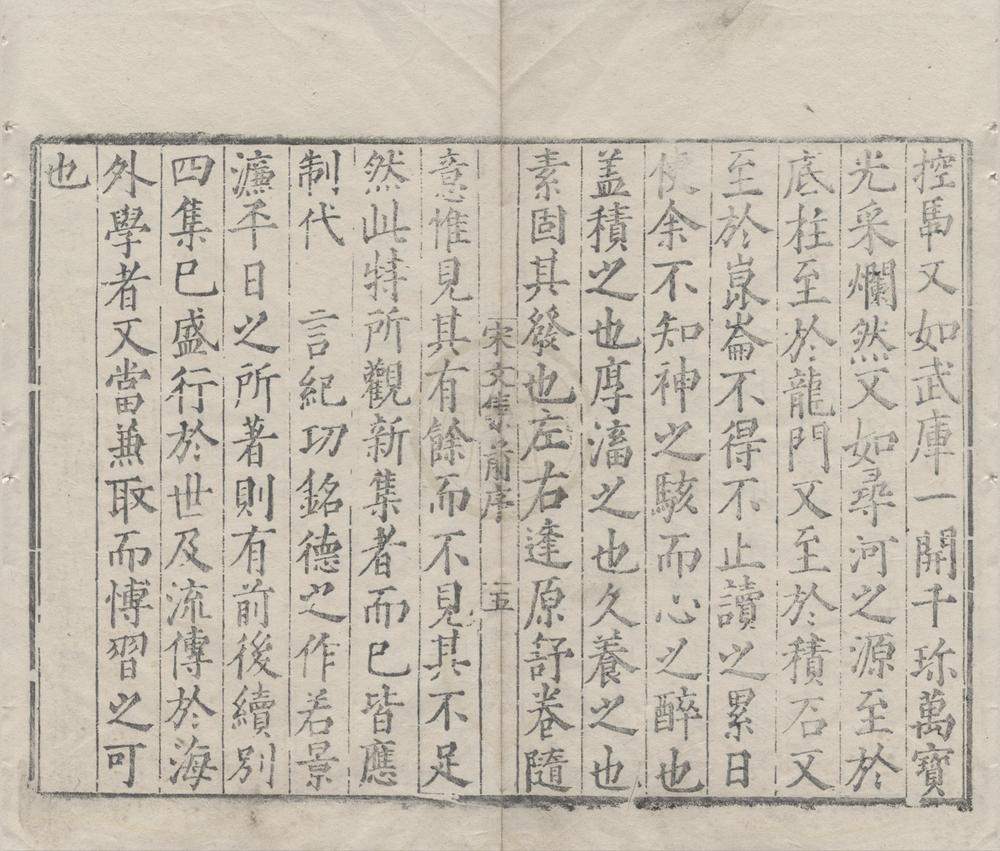 控馬又如武庫一開千珎萬寶
光采爛然又如尋河之源至於
底柱至於龍門又至於積石又
至於崑崙不得不止讀之累日
使余不知神之駭而心之醉也
盖積之也厚滀之也久養之也
素固其發也左右逢原舒卷隨
宋文集前序 五
意惟見其有餘而不見其不足
然此特所觀新集者而已皆應
制代 言紀功銘德之作若景
濂平日之所著則有前後續别
四集已盛行於世及流傳於海
外學者又當兼取而愽習之可
也